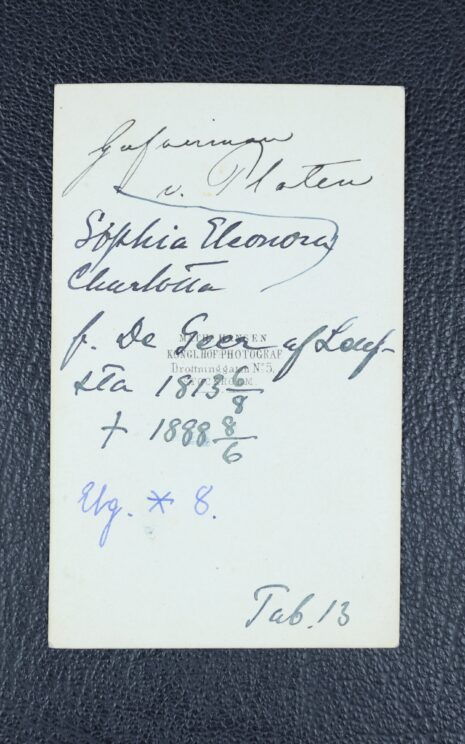 Grefvinnan
v. Platen
Sophia Eleonora
Charlotta
f. De Geer af Leuf-
sta 1813 6/8
† 1888 8/6
MATH. HANSEN
KONGL. HOF-PHOTOGRAF
Drottninggatan No 5,
STOCKHOLM
Elg. * 8.
Tab. 13